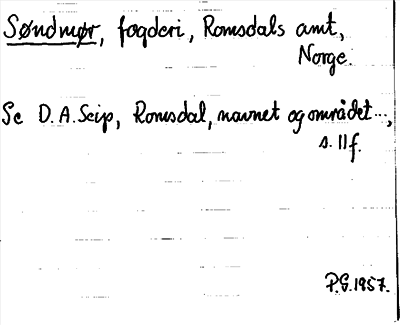 Søndmør, fogderi, Romsdals amt,
Norge.
Se D. A. Seip, Romsdal, navnet og området...,
s. 11f.
P.G. 1957.